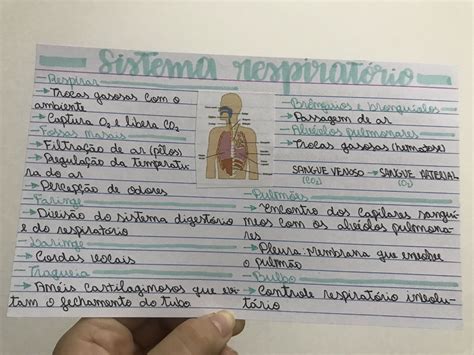 Sistema respiratório
Respirar
→ Trocas gasosas com o
ambiente
→ Captura O₂ e libera CO₂
Fossas nasais
→ Filtração de ar (pêlos)
→ Regulação da temperatu
ra do ar
→ Percepção de odores
Faringe
→ Divisão do sistema digestório
e do respiratório
Laringe
→ Cordas vocais
Traqueia
→ Anéis cartilaginosos que evi
tam o fechamento do tubo
Brônquios e bronquíolos
→ Passagem de ar
Alvéolos pulmonares
→ Trocas gasosas (hematose)
SANGUE VENOSO → SANGUE ARTERIAL
(CO₂) (O₂)
Pulmões
→ Encontro dos capilares sanguí
neos com os alvéolos pulmona
res
→ Pleura: Membrana que envolve
o pulmão
Bulbo
→ Controle respiratório involu
tório